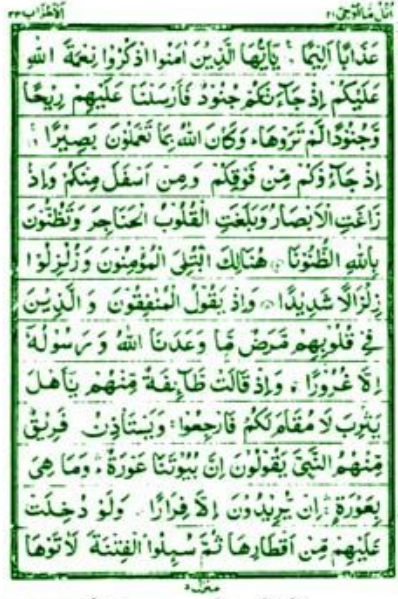 اتل ما اوحی ۲۱
الاحزاب ۳۳
عَذَابًا اَلِيْمًا ۞ يٰۤاَيُّهَا الَّذِيْنَ اٰمَنُوا اذْكُرُوْا نِعْمَةَ اللّٰهِ
عَلَيْكُمْ اِذْ جَآءَتْكُمْ جُنُوْدٌ فَاَرْسَلْنَا عَلَيْهِمْ رِيْحًا
وَّجُنُوْدًا لَّمْ تَرَوْهَا ؕ وَكَانَ اللّٰهُ بِمَا تَعْمَلُوْنَ بَصِيْرًا ۞
اِذْ جَآءُوْكُمْ مِّنْ فَوْقِكُمْ وَمِنْ اَسْفَلَ مِنْكُمْ وَاِذْ
زَاغَتِ الْاَبْصَارُ وَبَلَغَتِ الْقُلُوْبُ الْحَنَاجِرَ وَتَظُنُّوْنَ
بِاللّٰهِ الظُّنُوْنَا ۞ هُنَالِكَ ابْتُلِيَ الْمُؤْمِنُوْنَ وَزُلْزِلُوْا
زِلْزَالًا شَدِيْدًا ۞ وَاِذْ يَقُوْلُ الْمُنٰفِقُوْنَ وَالَّذِيْنَ
فِيْ قُلُوْبِهِمْ مَّرَضٌ مَّا وَعَدَنَا اللّٰهُ وَرَسُوْلُهٗۤ
اِلَّا غُرُوْرًا ۞ وَاِذْ قَالَتْ طَّآئِفَةٌ مِّنْهُمْ يٰۤاَهْلَ
يَثْرِبَ لَا مُقَامَ لَكُمْ فَارْجِعُوْا ۚ وَيَسْتَاْذِنُ فَرِيْقٌ
مِّنْهُمُ النَّبِيَّ يَقُوْلُوْنَ اِنَّ بُيُوْتَنَا عَوْرَةٌ ۛ وَمَا هِيَ
بِعَوْرَةٍ ۛ اِنْ يُّرِيْدُوْنَ اِلَّا فِرَارًا ۞ وَلَوْ دُخِلَتْ
عَلَيْهِمْ مِّنْ اَقْطَارِهَا ثُمَّ سُىِٕلُوا الْفِتْنَةَ لَاٰتَوْهَا
منزل ۵